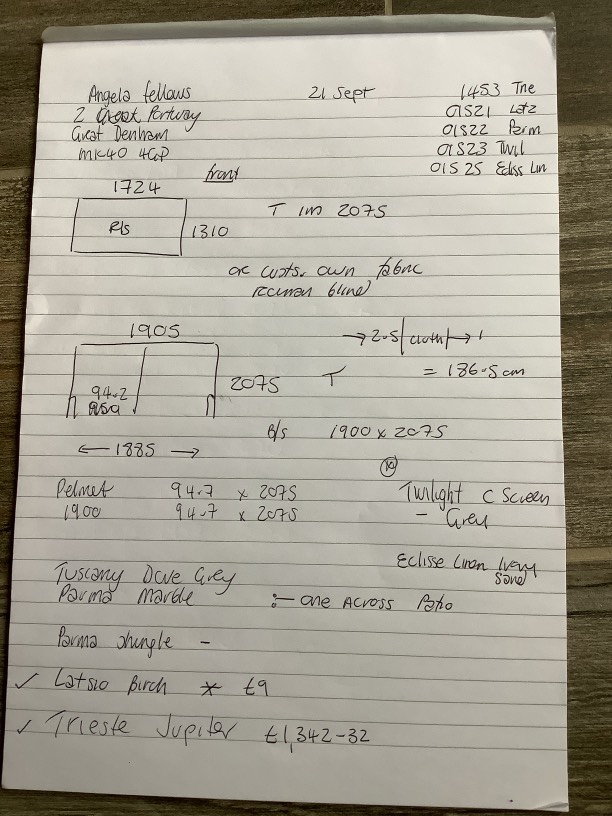 Angela Fellows
21 Sept
1453 Tne
2 Great Portway
01521 Latz
Great Denham
01522 Parm
MK40 4GP
01523 Twil
front
01525 Ecliss Lin
1724
R/s
1310
T 1m 2075
or custs. own fabric
roman blind
1905
→ 2.5 | cloth | → 1
94.2
2075
T
= 186.5cm
← 1885 →
B/s 1900 x 2075
Pelmet 94.7 x 2075
1900 94.7 x 2075
Twilight C Screen
- Grey
Eclisse Linen Ivory
Sand
Tuscany Dove Grey
Parma Marble :- one Across Patio
Parma shingle -
✓ Latsio Birch * £9
✓ Trieste Jupiter £1,342-32